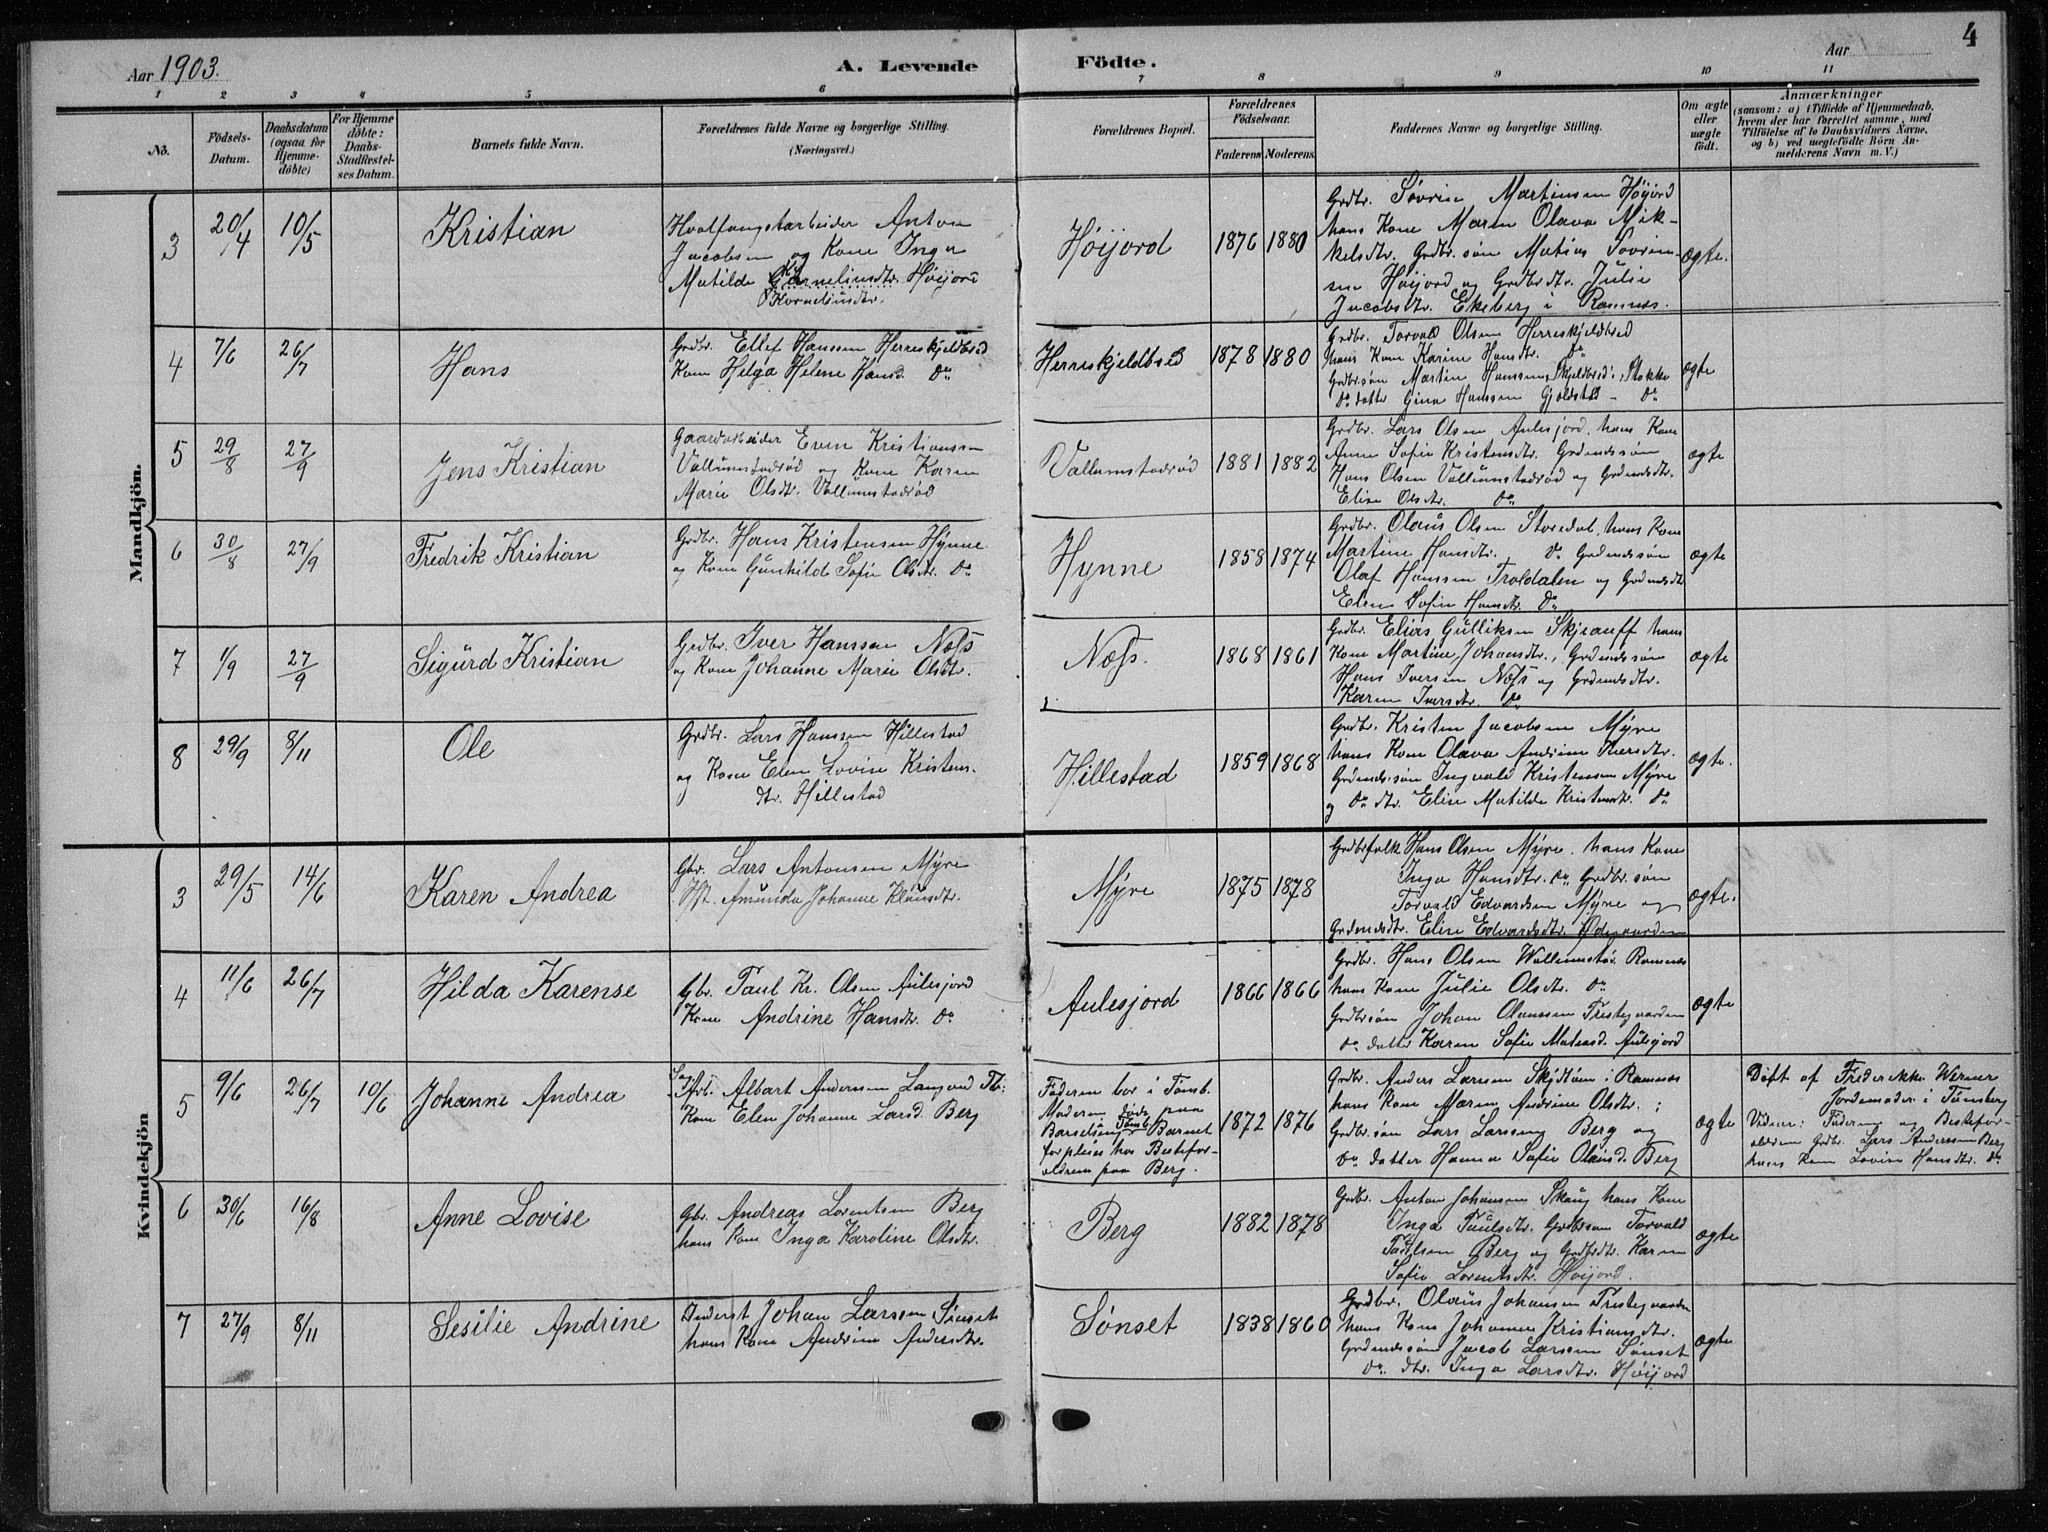 Aar 1903.
A. Levende Födte.
Aar
4
1 2 3 4 5 6 7 8 9 10 11
No.
Födsels-
Datum.
Daabsdatum
(ogsaa for
Hjemme-
döbte)
For Hjemme
döbte:
Daabs-
Stadfæstel-
ses Datum.
Barnets fulde Navn.
Forældrenes fulde Navne og borgerlige Stilling.
(Næringsvei.)
Forældrenes Bopæl.
Forældrenes
Födselsaar.
Faderens Moderens
Faddernes Navne og borgerlige Stilling.
Om ægte
eller
uægte
födt.
Anmærkninger
(saasom: a) i Tilfælde af Hjemmedaab.
hvem der har forrettet samme, med
Tilföielse af to Daabsvidners Navne.
og b) ved uægtefödte Börn An-
melderens Navn m. V.)
Mandkjön.
3 20/4 10/5 Kristian
Hvalfangstarbeider Anton
Jacobsen og Kone Inga
Matilde Kornelinsdtr. Høijord
Kornelinsdtr.
Høijord 1876 1880
Grdbr. Søvrin Martinsen Høijord
hans Kone Maren Olava Mik-
kelsdtr. Grdbr.søn Matias Sovrin-
sen Høijord og Grdbrdtr. Julie
Jacobsdtr. Ekeberg i Ramnes.
ægte.
4 7/6 26/7 Hans
Grdbr. Ellef Hanssen Herreskjeldbred
Kone Helga Helene Hansd. do
Herreskjeldbred 1878 1880
Grdbr. Torvald Olsen Herreskjeldbred
hans Kone Karine Hansdtr. do
Grdbrsøn Martin Hanssen, Skjeldbred i Stokke
do datter Gina Hanssen Gjeldsted - do
ægte
5 29/8 27/9 Jens Kristian
Gaardarbeider Even Kristianssen
Vallumstadrød og Kone Karen
Marie Olsdtr. Vallumstadrød
Vallumstadrød 1881 1882
Grdbr. Lars Olsen Aulesjord, hans Kone
Anne Sofie Kristensdtr. Grdmdssøn
Hans Olsen Vallumstadrød og Grdmdsdtr.
Elise Olsdtr. do
ægte
6 30/8 27/9 Fredrik Kristian
Grdbr. Hans Kristensen Hynne
og Kone Gunhilde Sofie Olsdtr. do
Hynne 1858 1874
Grdbr. Olaüs Olsen Storedal, hans Kone
Martine Hansdtr. do Grdmdssøn
Olaf Hanssen Troldalen og Grdmdsdtr
Elen Sofie Hansdtr. do
ægte
7 1/9 27/9 Sigürd Kristian
Grdbr. Iver Hanssen Næss
og Kone Johanne Marie Olsdtr.
Næss. 1868 1861
Grdbr. Elias Gulliksen Skjeauff hans
Kone Martine Johansdtr., Grdmdssøn
Hans Iversen Næss og Grdmdsdtr.
Karen Iversdtr. do
ægte
8 29/9 8/11 Ole
Grdbr. Lars Hanssen Hillestad
og Kone Elen Lovise Kristens-
dtr. Hillestad
Hillestad 1859 1868
Grdbr. Kristen Jacobsen Myre
hans Kone Olava Andrine Iversdtr.
Grdmdssøn Ingvald Kristensen Myre
og do dtr. Elise Matilde Kristensdtr. do
ægte.
Kvindekjön
3 29/5 14/6 Karen Andrea
Gbr. Lars Antonsen Myre
Hst. Amunda Johanne Klausdtr.
Myre 1875 1878
Grdbrfolk Hans Olsen Myre, hans Kone
Inga Hansdtr. do Grdbr.søn
Torvald Edvardsen Myre og
Grdmdsdtr. Elise Edvardsdtr. Ødegaarden
ægte.
4 11/6 26/7 Hilda Karense
Gbr. Paul Kr. Olsen Aulesjord
Kone Andrine Hansdtr. do
Aulesjord 1866 1866
Grdbr. Hans Olsen Wallumstø. Ramnes
hans Kone Julie Olsdtr. do
Grdbrsøn Johan Olaussen Prestegaarden
do datter Karen Sofie Matensd. Aulesjord
ægte
5 9/6 26/7 10/6 Johanne Andrea
Albart Andersen
Kone Elen Johanne Larsd. Berg
Faderen bor i Tønsb.
Moderen føde paa
Barselseng i Tønsb. Barnet
forpleies hos Bestefor-
ældrene paa Berg.
1872 1876
Grdbr. Anders Larsen i Ramnes
hans Kone Maren Andrine Olsdtr. ;
Grdbrsøn Lars Larssen Berg og
do datter Hanna Sofie Olausd. Berg
ægte
Døpt af Frederikke Werner
Jordemoder i Tønsberg
Vidner: Faderen og Bestefor-
ældrene Grdbr. Lars Anderssen Berg
hans Kone Lovise Hansdtr. do
6 30/6 16/8 Anne Lovise
Gbr. Andreas Lorentsen Berg
hans Kone Inga Karoline Olsdtr.
Berg 1882 1878
Grdbr. Anton Johansen Skaug hans Kone
Inga Paulsdtr. Grdbrsøn Torvald
Paulsen Berg og Grdbrdtr. Karen
Sofie Lorentsdtr. Høijord.
ægte
7 27/9 8/11 Sesilie Andrine
Inderst Johan Larssen Sønset
hans Kone Andrine Andersdtr.
Sønset 1838 1860
Grdbr. Olaüs Johansen Prestegaarden
hans Kone Johanne Kristiansdtr.
Grdmdssøn Jacob Larssen Sønset
do dtr. Inga Larsdtr. Høijord
ægte